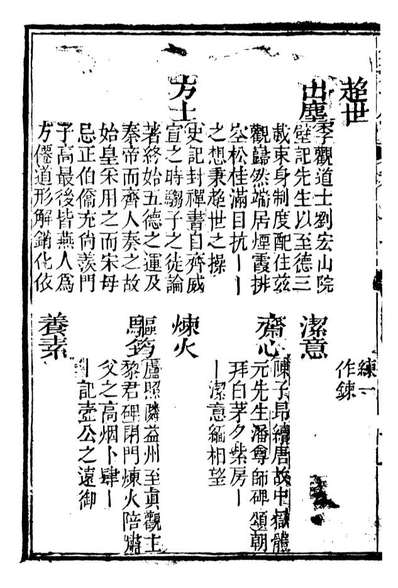 趨世
出塵
李觀道士劉宏山院
壁記先生以至德三
載束身制度配住茲
觀囂然端居煙霞排
空松桂滿目抗丨丨
之想秉趨世之操
方士
史記封禪書自齊威
宣之時騶子之徒論
著終始五德之運及
秦帝而齊人奏之故
始皇采用之而宋母
忌正伯僑充尚羨門
子高最後皆燕人為
方僊道形解銷化依
練一
作鍊
潔意
齋心
陳子昂續唐故中嶽體
元先生潘尊師碑頌朝
拜白茅夕柴房丨
丨潔意緬相望
煉火
驅筠
盧照隣益州至真觀主
黎君碑閉門煉火陪嘯
父之高烟卜肆丨
丨記壺公之遠御
養素